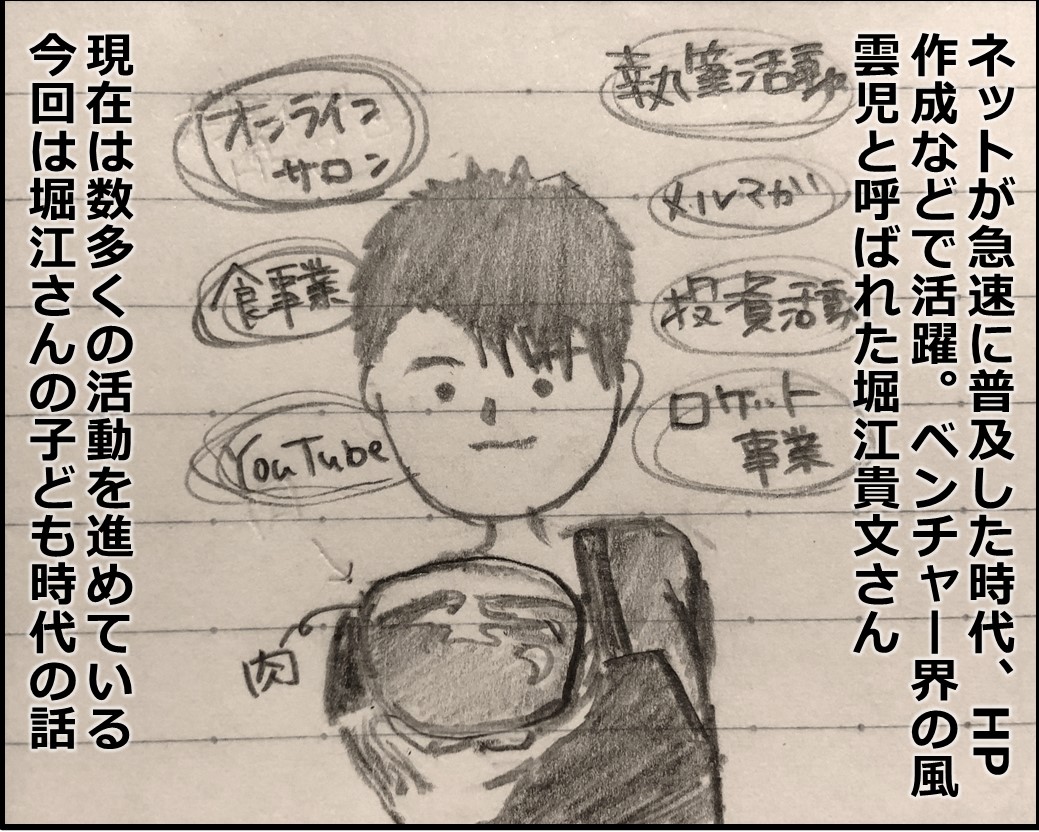 ネットが急速に普及した時代、HP
作成などで活躍。ベンチャー界の風
雲児と呼ばれた堀江貴文さん
執筆活動
メルマガ
投資活動
ロケット
事業
オンライン
サロン
食事業
YouTube
肉
現在は数多くの活動を進めている
今回は堀江さんの子ども時代の話